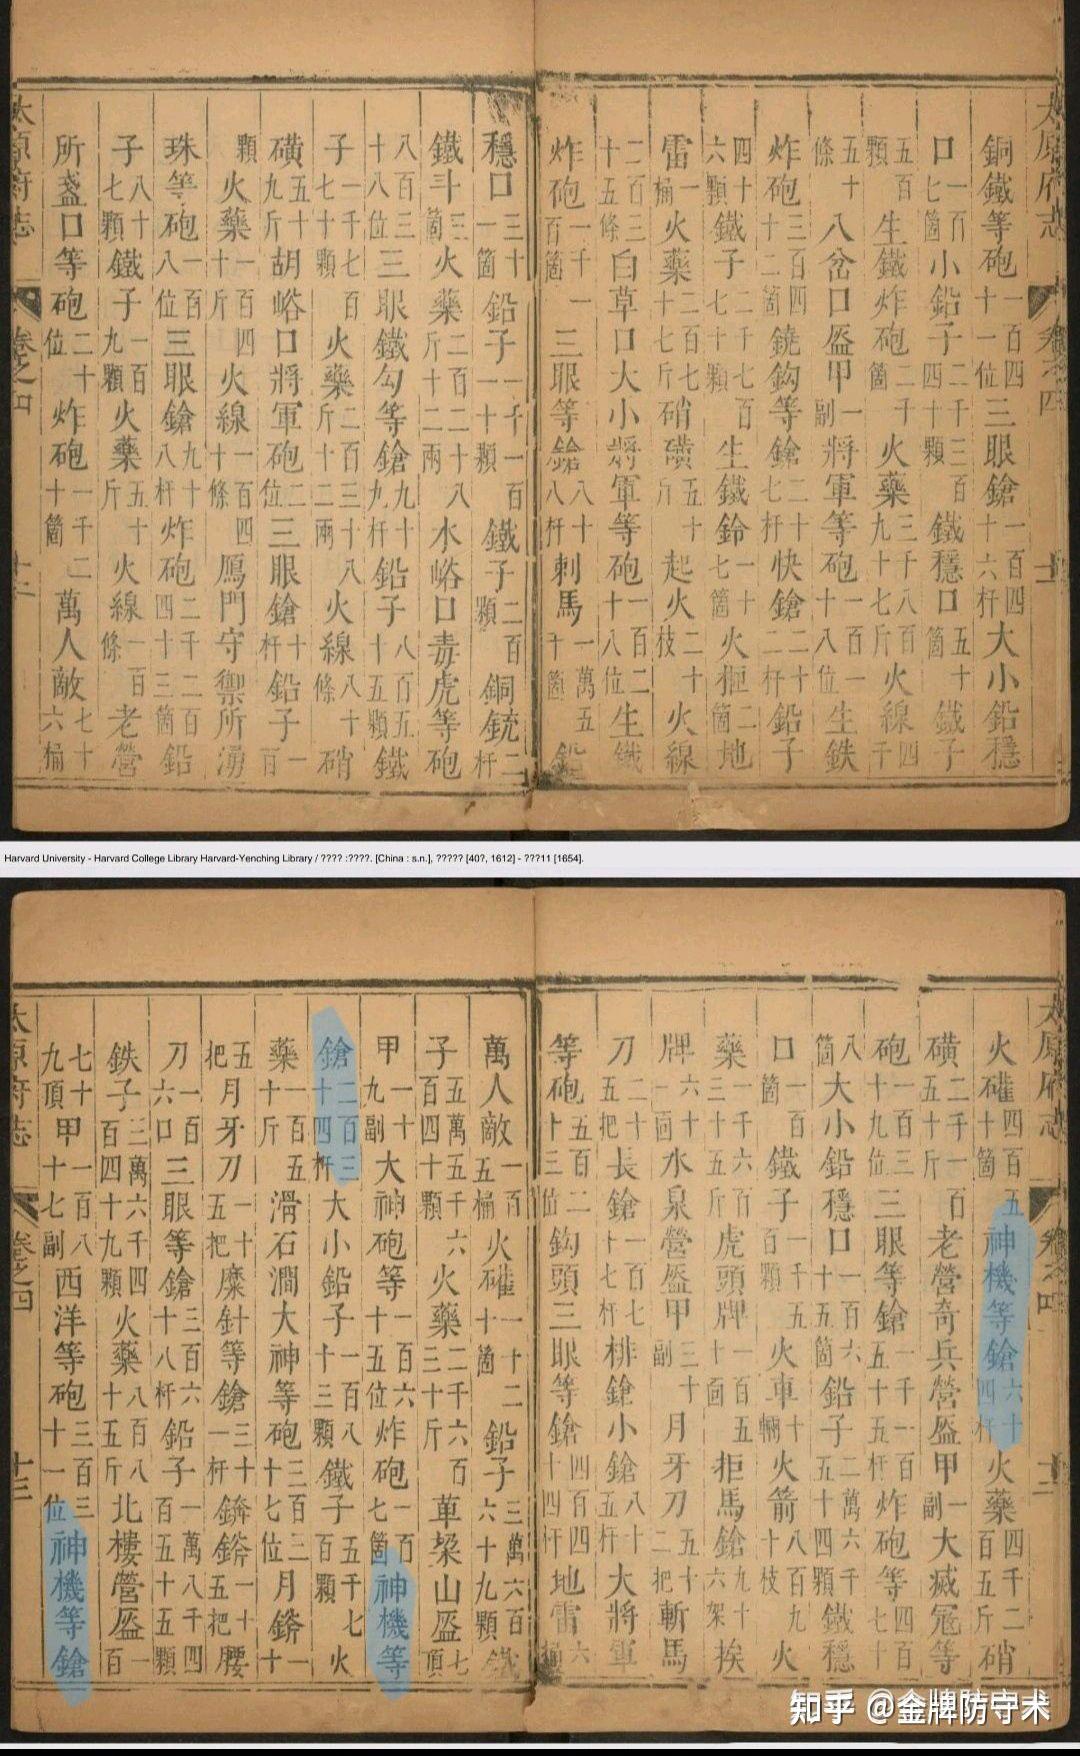 太原府志 卷之四 十二
銅鐵等砲一百四十一位三眼鎗一百四十六杆大小鉛穩
口一百七箇小鉛子二千三百四十顆鐵穩口五十箇鐵子
五百顆生鐵炸砲二千箇火藥三千八百九十七斤火線四千
五十條八岔口盔甲一副將軍等砲一百一十八位生鉄
炸砲三百四十二箇鐃鈎等鎗二十七杆快鎗二十二杆鉛子
四十六顆鐵子二千七百七十顆生鐵鈴一十七箇火柜二箇地
雷一桶火藥二百七十七斤硝磺五十斤起火二十枝火線
二百三十五條白草口大小將軍等砲一百二十八位生鐵
炸砲一千一百箇三眼等鎗八十八杆刺馬一萬五千箇鉛
穩口三十一箇鉛子一千一百一十顆鐵子二百顆銅銃二杆
鐵斗三箇火藥二百二十八斤十二兩水峪口毒虎等砲
八百三十八位三眼鐵勾等鎗九十九杆鉛子八百五十五顆鐵
子一千七百七十顆火藥二百三十八斤十二兩火線八十條硝
磺五十九斤胡峪口將軍砲二位三眼鎗十杆鉛子一百
顆火藥一百四十斤火線一百四條鴈門守禦所湧
珠等砲一百八位三眼鎗九十八杆炸砲二千二百四十三箇鉛
子八十七顆鐵子一百九顆火藥五十斤火線一百條老營
所盞口等砲二十位炸砲一千二十箇萬人敵七十六桶
太原府志 卷之四 十二
Harvard University - Harvard College Library Harvard-Yenching Library / ???? :????. [China : s.n.], ????? [40?, 1612] - ???11 [1654].
太原府志 卷之四 十三
火礶四百五十箇神機等鎗六十四杆火藥四千二百五斤硝
磺二千一百五十斤老營奇兵營盔甲一副大滅寇等
砲一百三十九位三眼等鎗一千一百五十五杆炸砲等四百七十
八箇大小鉛穩口一百六十五箇鉛子二萬六千五十四顆鐵穩
口一百箇鐵子一千五百顆火車十輛火箭八百九十枝火
藥三千六百三十五斤虎頭牌一百五十面拒馬鎗九十六架挨
牌六十一面水泉營盔甲三十副月牙刀五十二把斬馬
刀二十五把長鎗一百七十七杆排鎗小鎗八十五杆大將軍
等砲五百二十三位鈎頭三眼等鎗四百四十四杆地雷六桶
萬人敵一百五桶火礶一十二十箇鉛子三萬六百六十九顆鐵
子五萬五千六百四十顆火藥二千六百三十斤草梁山盔七頂
甲一十九副大神砲等一百六十五位炸砲一百七箇神機等
鎗二百三十四杆大小鉛子一百八十三顆鐵子五千七百顆火
藥一百五十斤滑石澗大神等砲三百三十七位月一十
五把月牙刀一十五把麋針等鎗三十一杆一十五把腰
刀一百六口三眼等鎗三百六十八杆鉛子一萬八千四百五十五顆
鉄子三萬六千四百四十九顆火藥八百八十五斤北樓營盔一百
七十九頂甲一百八十七副西洋等砲三百三十一位神機等鎗
太原府志 卷之四 十三
知乎 @金牌防守术